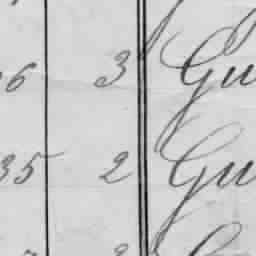 6 3 Gu
35 2 Gu